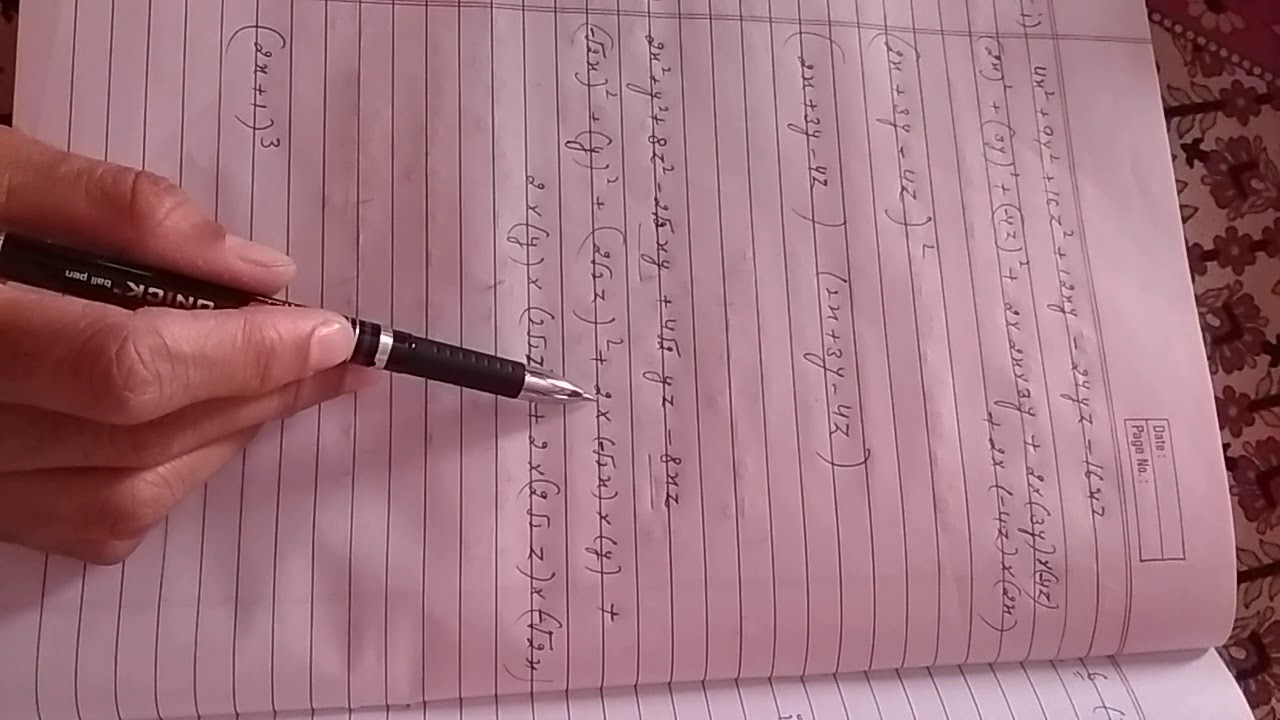 Date :
Page No. :
1) 4x² + 9y² + 16z² + 12xy - 24yz - 16xz
(2x)² + (3y)² + (-4z)² + 2x2xx3y + 2x(3y)x(-4z)
+ 2x(-4z)x(2x)
(2x + 3y - 4z)²
(2x + 3y - 4z) (2x + 3y - 4z)
2x² + y² + 8z² - 2√2xy + 4√2 yz - 8xz
(-√2x)² + (y)² + (2√2 z)² + 2x(-√2x)x(y) +
2x(y)x(2√2z) + 2x(2√2 z)x(-√2x)
(2x + 1)³
UNICK ball pen